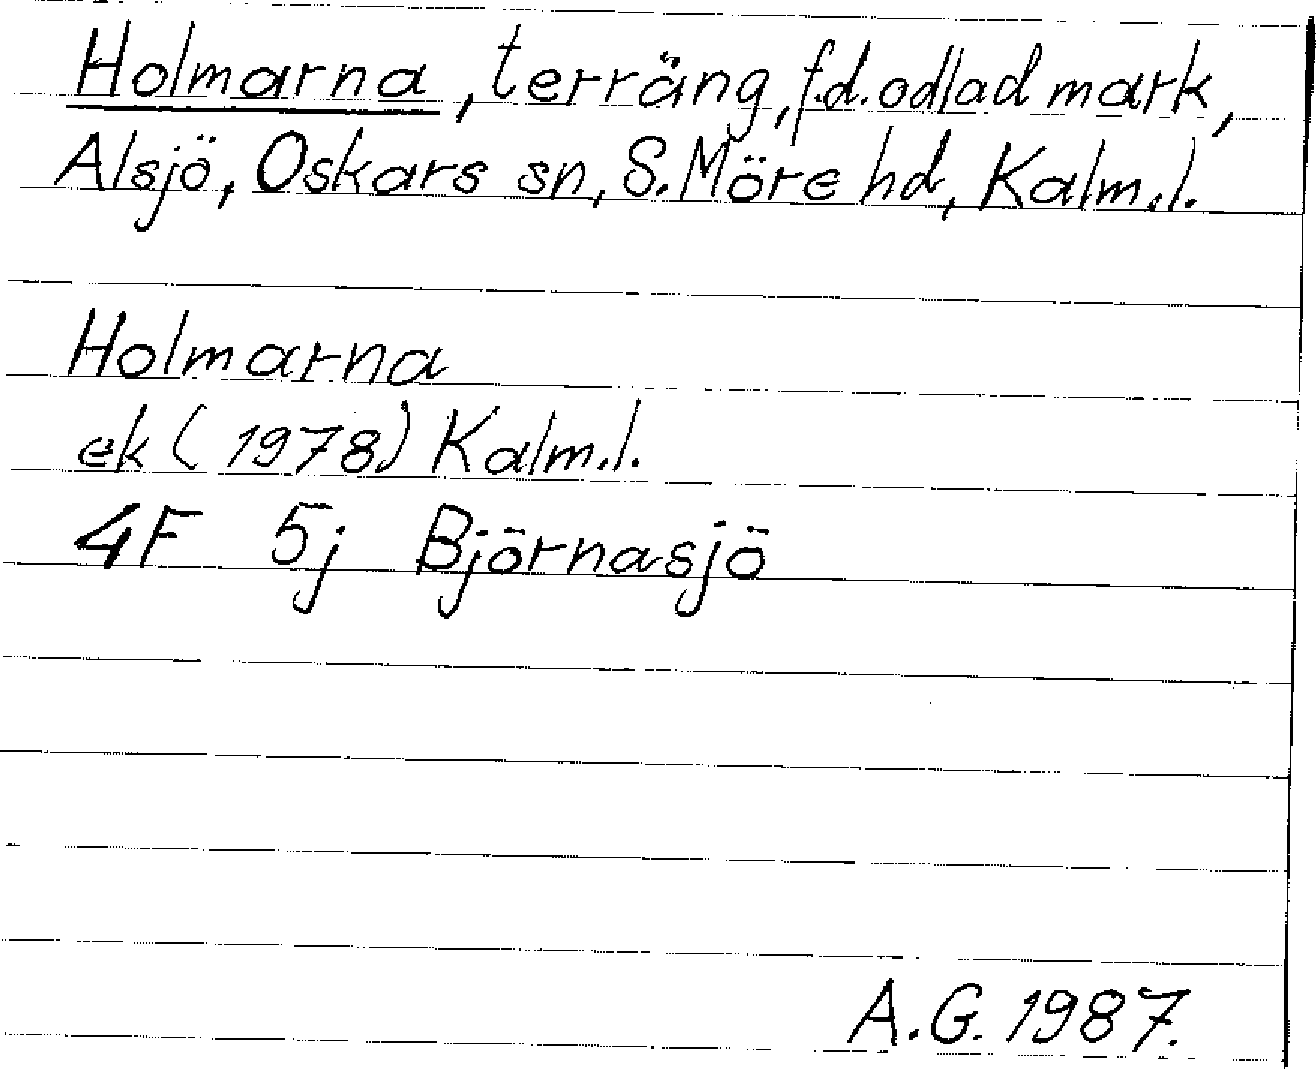 Holmarna, terräng, f.d. odlad mark,
Alsjö, Oskars sn, S. Möre hd, Kalm.l.
Holmarna
ek (1978) Kalm.l.
4F 5j Björnasjö
A.G. 1987.